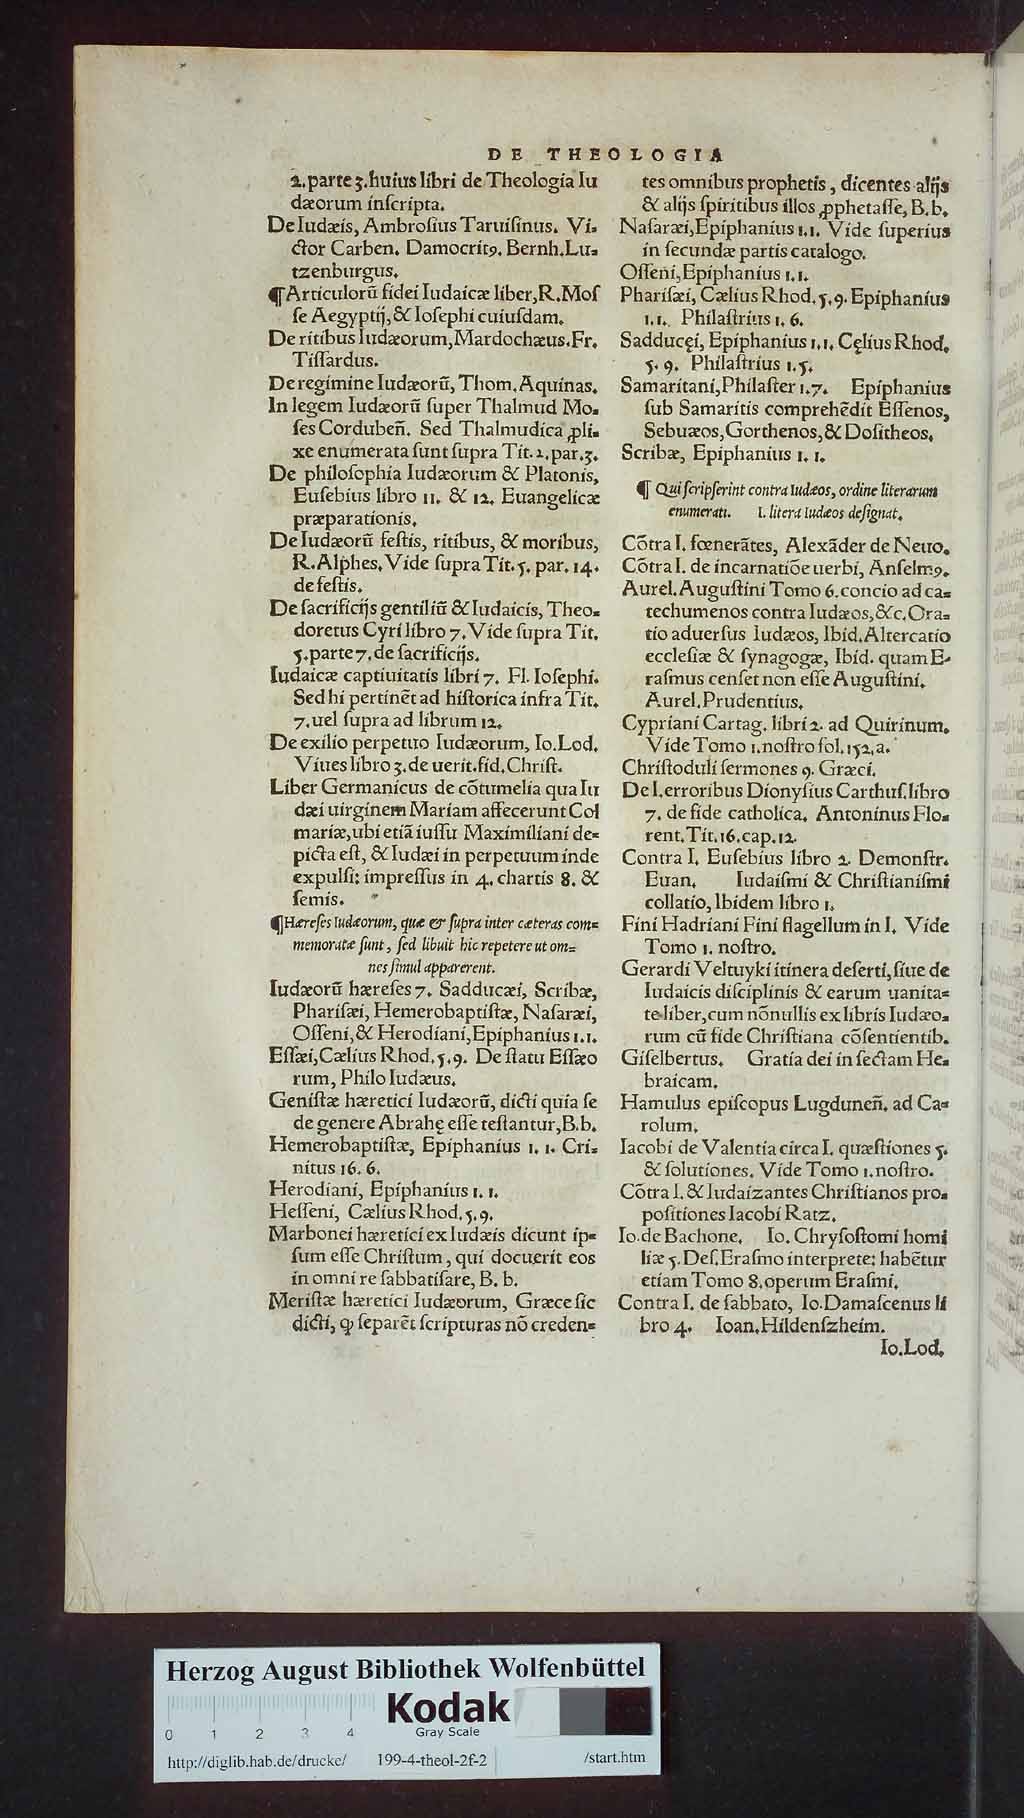 DE THEOLOGIA
2. parte 3. huius libri de Theologia Iu
dæorum inſcripta.
De Iudæis, Ambroſius Taruiſinus. Vi-
ctor Carben. Damocritꝰ. Bernh. Lu-
tzenburgus.
¶ Articulorū fidei Iudaicæ liber, R. Moſ
ſe Aegyptij, & Ioſephi cuiuſdam.
De ritibus Iudæorum, Mardochæus. Fr.
Tiſſardus.
De regimine Iudæorū, Thom. Aquinas.
In legem Iudæorū ſuper Thalmud Mo-
ſes Cordubeñ. Sed Thalmudica ꝓli-
xe enumerata ſunt ſupra Tit. 2. par. 3.
De philoſophia Iudæorum & Platonis,
Euſebius libro 11. & 12. Euangelicæ
præparationis.
De Iudæorū feſtis, ritibus, & moribus,
R. Alphes. Vide ſupra Tit. 5. par. 14.
de feſtis.
De ſacrificijs gentiliū & Iudaicis, Theo-
doretus Cyri libro 7. Vide ſupra Tit.
5. parte 7. de ſacrificijs.
Iudaicæ captiuitatis libri 7. Fl. Ioſephi.
Sed hi pertinēt ad hiſtorica infra Tit.
7. uel ſupra ad librum 12.
De exilio perpetuo Iudæorum, Io. Lod.
Viues libro 3. de uerit. fid. Chriſt.
Liber Germanicus de cōtumelia qua Iu
dæi uirginem Mariam affecerunt Col
mariæ, ubi etiā iuſſu Maximiliani de-
picta eſt, & Iudæi in perpetuum inde
expulſi: impreſſus in 4. chartis 8. &
ſemis.
¶ Hæreſes Iudæorum, quæ & ſupra inter cæteras com-
memoratæ ſunt, ſed libuit hic repetere ut om-
nes ſimul apparerent.
Iudæorū hæreſes 7. Sadducæi, Scribæ,
Phariſæi, Hemerobaptiſtæ, Naſaræi,
Oſſeni, & Herodiani, Epiphanius 1.1.
Eſſæi, Cælius Rhod. 5.9. De ſtatu Eſſæo
rum, Philo Iudæus.
Geniſtæ hæretici Iudæorū, dicti quia ſe
de genere Abrahę eſſe teſtantur, B.b.
Hemerobaptiſtæ, Epiphanius 1. 1. Cri-
nitus 16. 6.
Herodiani, Epiphanius 1. 1.
Heſſeni, Cælius Rhod. 5.9.
Marbonei hæretici ex Iudæis dicunt ip-
ſum eſſe Chriſtum, qui docuerit eos
in omni re ſabbatiſare, B. b.
Meriſtæ hæretici Iudæorum, Græce ſic
dicti, ꝙ ſeparēt ſcripturas nō creden-
tes omnibus prophetis, dicentes alijs
& alijs ſpiritibus illos ꝓphetaſſe, B.b.
Naſaræi, Epiphanius 1.1. Vide ſuperius
in ſecundæ partis catalogo.
Oſſeni, Epiphanius 1.1.
Phariſæi, Cælius Rhod. 5.9. Epiphanius
1.1. Philaſtrius 1. 6.
Sadducęi, Epiphanius 1.1. Cęlius Rhod.
5. 9. Philaſtrius 1.5.
Samaritani, Philaſter 1.7. Epiphanius
ſub Samaritis comprehēdit Eſſenos,
Sebuæos, Gorthenos, & Doſitheos.
Scribæ, Epiphanius 1. 1.
¶ Qui ſcripſerint contra Iudæos, ordine literarum
enumerati. I. litera Iudæos deſignat.
Cōtra I. fœnerātes, Alexāder de Neuo.
Cōtra I. de incarnatiōe uerbi, Anſelmꝰ.
Aurel. Auguſtini Tomo 6. concio ad ca-
techumenos contra Iudæos, &c. Ora-
tio aduerſus Iudæos, Ibid. Altercatio
eccleſiæ & ſynagogæ, Ibid. quam E-
raſmus cenſet non eſſe Auguſtini.
Aurel. Prudentius.
Cypriani Cartag. libri 2. ad Quirinum.
Vide Tomo 1. noſtro fol. 152. a.
Chriſtoduli ſermones 9. Græci.
De I. erroribus Dionyſius Carthuſ. libro
7. de fide catholica. Antoninus Flo-
rent. Tit. 16. cap. 12.
Contra I. Euſebius libro 2. Demonſtr.
Euan. Iudaiſmi & Chriſtianiſmi
collatio, Ibidem libro 1.
Fini Hadriani Fini flagellum in I. Vide
Tomo 1. noſtro.
Gerardi Veltuyki itinera deſerti, ſiue de
Iudaicis diſciplinis & earum uanita-
te liber, cum nōnullis ex libris Iudæo-
rum cū fide Chriſtiana cōſentientib.
Giſelbertus. Gratia dei in ſectam He-
braicam.
Hamulus epiſcopus Lugduneñ. ad Ca-
rolum.
Iacobi de Valentia circa I. quæſtiones 5.
& ſolutiones. Vide Tomo 1. noſtro.
Cōtra I. & Iudaizantes Chriſtianos pro-
poſitiones Iacobi Ratz.
Io. de Bachone. Io. Chryſoſtomi homi
liæ 5. Deſ. Eraſmo interprete: habētur
etiam Tomo 8. operum Eraſmi.
Contra I. de ſabbato, Io. Damaſcenus li
bro 4. Ioan. Hildenſzheim.
Io. Lod.
Herzog August Bibliothek Wolfenbüttel
Kodak
0 1 2 3 4
Gray Scale
http://diglib.hab.de/drucke/ 199-4-theol-2f-2 /start.htm